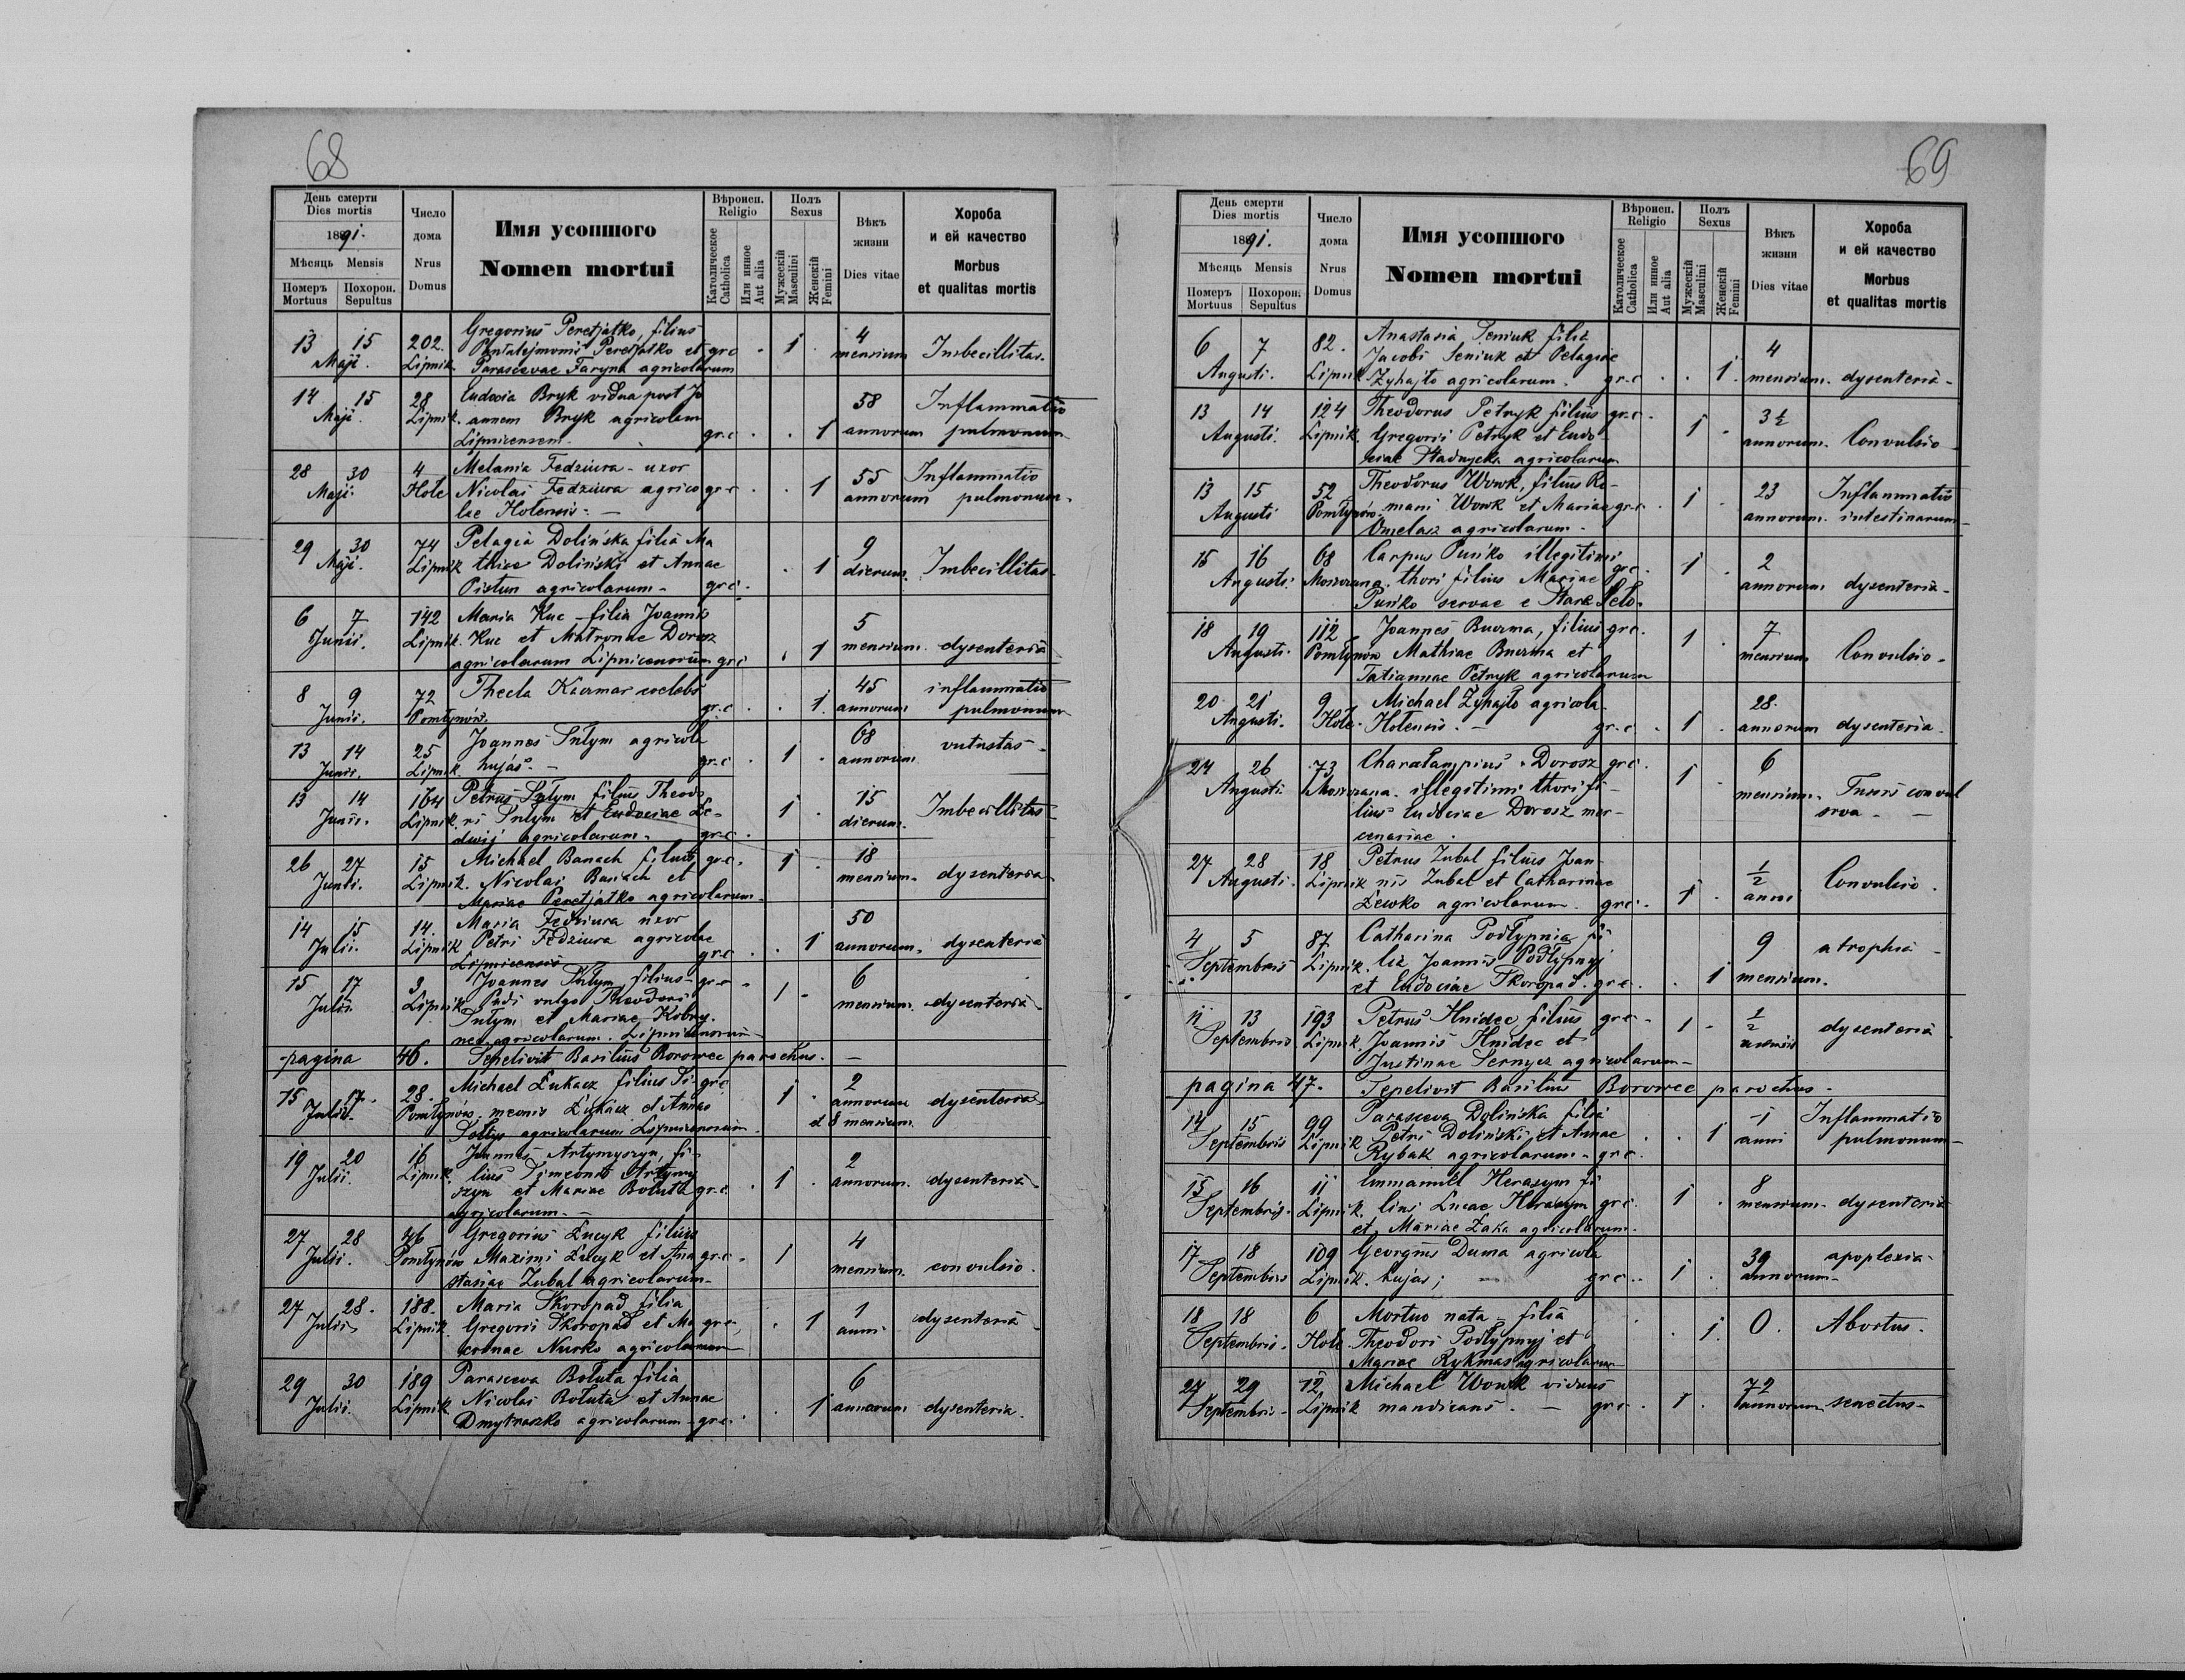 68
День смерти
Dies mortis
1891.
Мѣсяць Mensis
Померъ Mortuus
Похорон. Sepultus
Число дома
Nrus Domus
Имя усопшого
Nomen mortui
Вѣроисп. Religio
Католическое Catholica
Или инное Aut alia
Полъ Sexus
Мужескій Masculini
Женскій Femini
Вѣкъ жизни
Dies vitae
Хороба и ей качество
Morbus et qualitas mortis
13 15 202. Gregorius Peretjatko, filius 4
Maji. Lipnik. Pantalejmonis Peretjatko et gr.c . 1 . mensium Imbecillitas.
Parascevae Faryna agricolarum
14 15 28 Eudocia Bryk vidua post Jo 58 Inflammatio
Maji. Lipnik. annem Bryk agricolam
Lipnicensem. gr.c . . 1 annorum pulmonum
28 30 4 Melania Fedziura - uxor 55 Inflammatio
Maji. Hole Nicolai Fedziura agrico gr.c . . 1 annorum pulmonum.
lae Holensis. —
29 30 74 Pelagia Dolińska filia Ma 9
Maji. Lipnik thiae Doliński et Annae . 1 dierum. Imbecillitas
Pistun agricolarum - gr.c.
6 7 142 Maria Kuc - filia Joannis 5
Junii. Lipnik. Kuc et Matronae Dorosz mensium. dysenteria
agricolarum Lipnicensium gr.c . 1
8 9 72 Thecla Kaczmar coelebs 45 inflammatio
Junii. Pomłynów. gr.c . . 1. annorum pulmonum
13 14 25 Joannes Sułym agricola 68
Junii. Lipnik hujas. — gr.c . 1 . annorum vutustas.
13 14 164 Petrus Sułym filius Theodo 15
Junii. Lipnik. ri Sułym et Eudociae Le- 1 . dierum. Imbecillitas
dwij agricolarum. gr.c .
26 27 15 Michael Banach filius gr.c. 1 . 18
Junii. Lipnik. Nicolai Banach et mensium. dysenteria
Mariae Peretjatko agricolarum.
14 15 14. Maria Fedziura uxor 50
Julii. Lipnik Petri Fedziura agricolae . 1 annorum. dysenteria
Lipnicensis gr.c .
15 17 3 Joannes Sułym filius gr.c . 6
Julii Lipnik vulgo Theodori 1 . mensium. dysenteria
Sułym et Mariae
agricolarum. Lipnicensium
pagina 46. Sepelivit Basilius Borowec parochus. —
15 17. 28. Michael Łukacz filius Si- gr.c 2
Julii. Pomłynów. meonis Łukacz et Annae 1 . annorum dysenteria
Sołtys agricolarum Lipnicensium et 8 mensium.
19 20 16 Joannes Artymyszyn, fi- 2
Julii. Lipnik. lius Simeonis Artymy 1 . annorum. dysenteria
szyn et Mariae Bołuta gr.c.
agricolarum. —
27 28 46 Gregorius Łucyk filius 4
Julii. Pomłynów Maximi Łucyk et Ana gr.c . 1 mensium. convulsio.
stasiae Zubal agricolarum.
27 28. 188. Maria Skoropad filia 1
Julii Lipnik. Gregorii Skoropad et Ma gr.c, . 1 anni dysenteria
cronae Nurko agricolarum
29 30 189 Parasceva Bołuta filia 6
Julii. Lipnik Nicolai Bołuta et Annae 1 annorum dysenteria.
Dmytraszko agricolarum - gr.c.
69
День смерти
Dies mortis
1891.
Мѣсяць Mensis
Померъ Mortuus
Похорон. Sepultus
Число дома
Nrus Domus
Имя усопшого
Nomen mortui
Вѣроисп. Religio
Католическое Catholica
Или инное Aut alia
Полъ Sexus
Мужескій Masculini
Женскій Femini
Вѣкъ жизни
Dies vitae
Хороба и ей качество
Morbus et qualitas mortis
6 7 82. Anastasia Seniuk filia 4
Augusti. Lipnik Jacobi Seniuk et Pelagiae
Zyhajło agricolarum. gr.c . . 1. mensium. dysenteria
13 14 124 Theodorus Petryk filius gr.c. 3 ½
Augusti. Lipnik. Gregorii Petryk et Eudo- 1 . annorum. Convulsio
ciae Stadnycka agricolarum
13 15 52 Theodorus Wowk, filius Ro- 23 Inflammatio
Augusti Pomłynów. mani Wowk et Mariae gr.c. 1 . annorum. intestinarum
Omelasz agricolarum.
15 16 68 Carpus Puńko illegitimi gr.c. 1 . 2
Augusti. thori filius Mariae annorum dysenteria
Puńko servae e Stare Seło.
18 19 112 Joannes Buczma, filius gr.c. 1 . 7
Augusti. Pomłynów Mathiae Buczma et mensium Convulsio.
Tatiannae Petryk agricolarum
20 21 9 Michael Zyhajło agricola 28.
Augusti. Hole. Holensis. — gr.c . 1 . annorum dysenteria.
24 26 73 Charałampius Dorosz gr.c. 6
Augusti illegitimi thori fi- 1 . mensium. Tussis convul
lius Eudociae Dorosz mer- siva. —
cenariae.
27 28 18 Petrus Zubal filius Joan- ½
Augusti. Lipnik nis Zubal et Catharinae anni Convulsio.
Lewko agricolarum. gr.c. 1 .
4 5 87 Catharina Podłypnia fi 9 atrophia
Septembris Lipnik. lia Joannis Podłypnyj
et Eudociae Skoropad. gr.c. . 1 mensium.
11 13 193 Petrus Hnidec filius gr.c. 1 . ½
Septembris Lipnik. Joannis Hnidec et mensis dysenteria
Justinae Sernycz agricolarum
pagina 47. Sepelivit Basilius Borowec parochus.
14 15 99 Parasceva Dolińska filia 1 Inflammatio
Septembris Lipnik Petri Doliński et Annae . . 1 anni pulmonum
Rybak agricolarum - gr.c.
15 16 11 Emmanuel Herasym fi 8
Septembris. Lipnik. lius Lucae Herasym gr.c. 1 . mensium. dysenteria
et Mariae Zaka agricolarum.
17 18 109 Georgius Duma agricola 39 apoplexia
Septembris Lipnik. hujas; — gr.c.. 1 . annorum
18 18 6 Mortuo nata filia . . 1. 0. Abortus.
Septembris. Hole Theodori Podłypnyj et
Mariae Rykmas agricolarum
27 29 12 Michael Wowk viduus 72
Septembris. Lipnik mandicans. — gr.c. 1 . annorum senectus